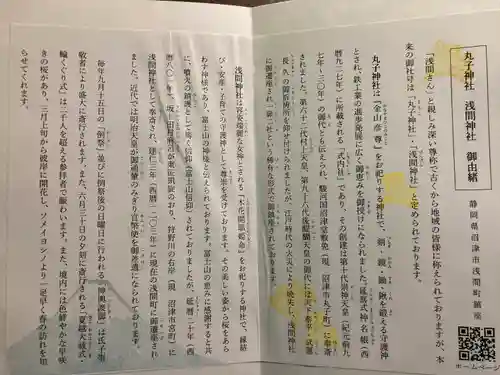 丸子神社 浅間神社 御由緒
静岡県沼津市浅間町鎮座
「浅間さん」と親しみ深い尊称で古くから地域の皆様に称えられておりますが、本
来の御社号は「丸子神社」・「浅間神社」と定められております。
丸子神社は「金山彦尊」をお祀りする神社で、銅・鋤・鍬を鍛える守護神
とされ、鉄工業の進歩発展に広く御夢をみを授けになられました。「延喜式」神名帳(西
暦九二七年)に所載される「式内社」であり、その創建は第十代崇神天皇(紀元前九
七年~三〇年)の御代とも伝えられ、駿河国沼津宮敷免(現 沼津市丸子町)に奉斎
されました。第六十二代村上天皇、第九十六代後醍醐天皇の御代には天下泰平・武運
長久の御祈祷所を仰せ付けられましたが、江戸時代の火災により焼失し、浅間神社
に御遷座され「一殿二社」という稀有な形式で御鎮座されております。
浅間神社は容姿端麗な女神とされる「木花開耶姫命」をお祀りする神社で、縁結
び・安産・子育ての守護神として尊崇を受けております。その美しい姿から桜をあら
わす神様であり、富士山の神様と伝えられております。富士山の恵みに感謝すると共
に、噴火の鎮護として篤く信仰(富士山信仰)されておりましたが、延暦二十年(西
暦八〇一年)坂上田村麻呂が東征凱旋のおり、狩野川の右岸(現 沼津市宮町)に
浅間神社として奉斎され、建仁三年(西暦一二〇三年)に現在の浅間町に御遷座され
ました。近代では明治天皇が御補輦のみぎり官幣使を御差遣になられております。
毎年九月十五日の「例祭」並びに例祭後の日曜日に行われる「神輿渡御」は氏子崇
敬者により盛大に斎行されます。また、六月三十日の夕刻に斎行される「夏越大祓式・
輪くぐり式」は二千人を超える参拝者で賑わいます。また、境内には色鮮やかな早咲
きの桜があり、三月上旬から彼岸に開花し、ソメイヨシノより一足早く春の訪れを知
らせてくれます。
ホームページ